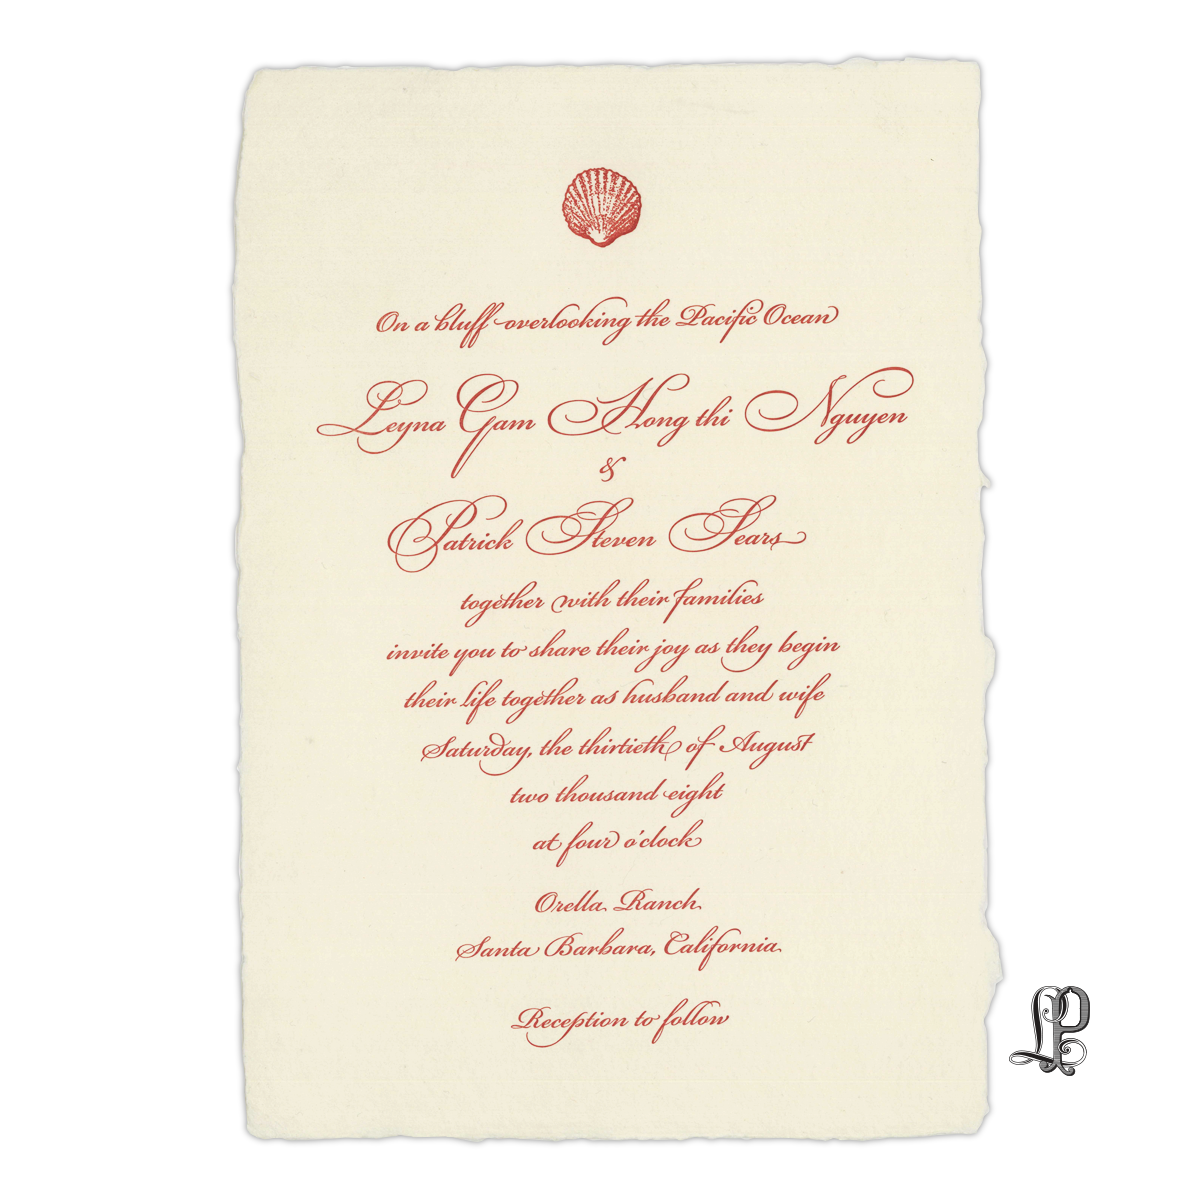 On a bluff overlooking the Pacific Ocean
Leyna Gam Hong thi Nguyen
&
Patrick Steven Sears
together with their families
invite you to share their joy as they begin
their life together as husband and wife
Saturday, the thirtieth of August
two thousand eight
at four o'clock
Orella Ranch
Santa Barbara, California
Reception to follow
LP